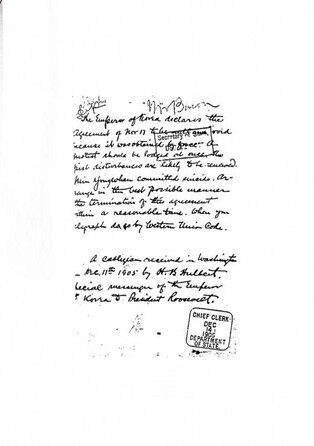 The Emperor of Korea declares the
agreement of Nov 17 to be void
because it was obtained by force. A
protest should be lodged at once, the
first disturbances are likely to be renewed
Min Yongwhan committed suicide. Ar-
range in the best possible manner
the termination of this agreement
within a reasonable time. When you
telegraph do so by Western Union Code.
A cablegram received in Washington
Dec. 11th 1905 by H. B. Hulbert,
special messenger of the Emperor
of Korea to President Roosevelt.
Secretary
CHIEF CLERK
DEC
14
1905
DEPARTMENT
OF STATE